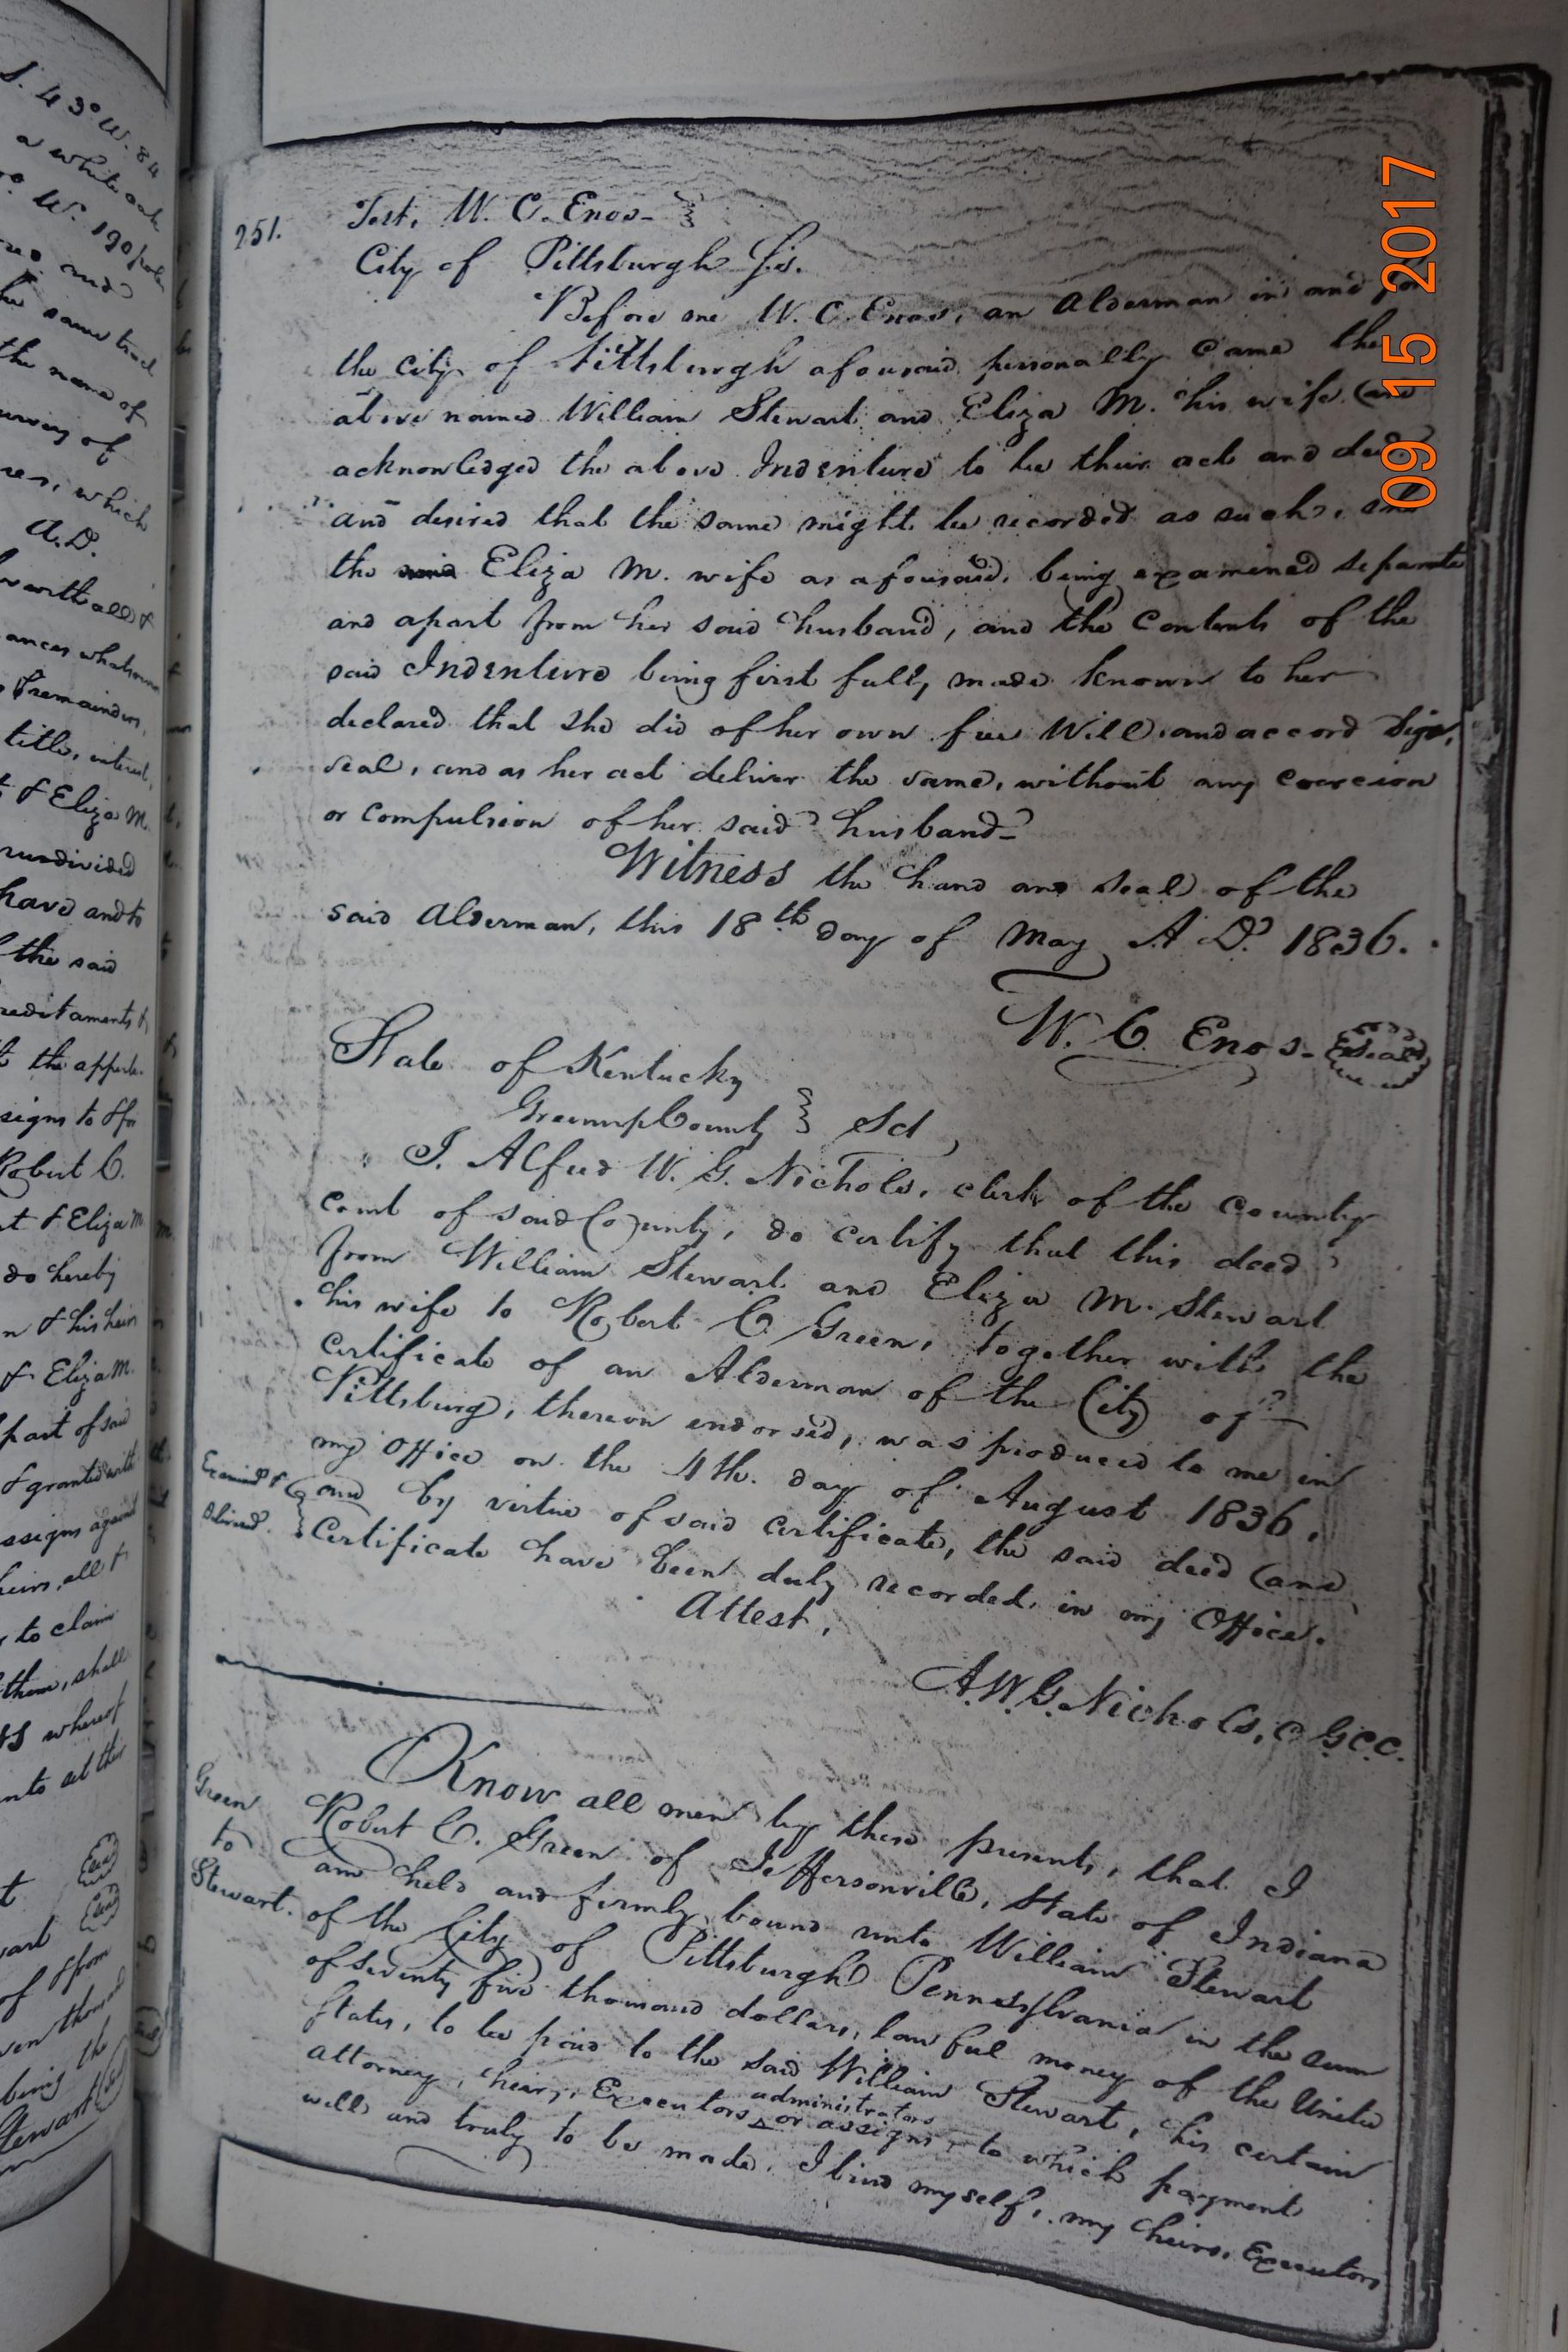 S. 43° W. 84
a white oak
W. 190 pole
and
the same tract
the name of
which
A.D.
with all &
ances whatsoever
& remainders,
title, interest,
& Eliza M.
undivided
have and to
the said
reditaments &
the appurte-
signs to & for
Robert C.
& Eliza M
do hereby
& his heirs
& Eliza M.
part of said
& granted with
assigns against
heirs, all &
to claim
them, shall
whereof
unto set their
of & from
being the
Stewart
251.
Test, W. C. Enos-
City of Pittsburgh Ss.
Before me W. C. Enos, an Alderman in and for
the city of Pittsburgh aforesaid personally came the
above named William Stewart and Eliza M. his wife (and
acknowledged the above Indenture to be their act and deed
and desired that the same might be recorded as such, and
the said Eliza M. wife as aforesaid, being examined separate
and apart from her said husband, and the contents of the
said Indenture being first fully made known to her
declared that she did of her own free Will and accord Sign,
seal, and as her act deliver the same, without any coercion
or compulsion of her said husband-
Witness the hand and seal of the
said Alderman, this 18th day of May A D. 1836.
W. C. Enos- Seal
State of Kentucky
Greenup County } Sct,
I, Alfred W. G. Nichols, clerk of the county
court of said County, do certify that this deed
from William Stewart and Eliza M. Stewart
his wife to Robert C. Green, together with the
certificate of an Alderman of the City of
Pittsburg, thereon endorsed, was produced to me in
my Office on the 4th. day of August 1836,
Examined & and by virtue of said certificate, the said deed (and
delivered. Certificate have been duly recorded in my Office.
Attest,
A. W. G. Nichols, C G.C.C.
Green
to
Stewart.
Know all men by these presents, that I
Robert C. Green of Jeffersonville, State of Indiana
am held and firmly bound unto William Stewart
of the City of Pittsburgh Pennessylvania in the sum
of seventy five thousand dollars, lawful money of the United
States, to be paid to the said William Stewart, his certain
attorney, heirs, Executors administrators or assigns, to which payment
well and truly to be made, I bind myself, my heirs, Executors
09 15 2017